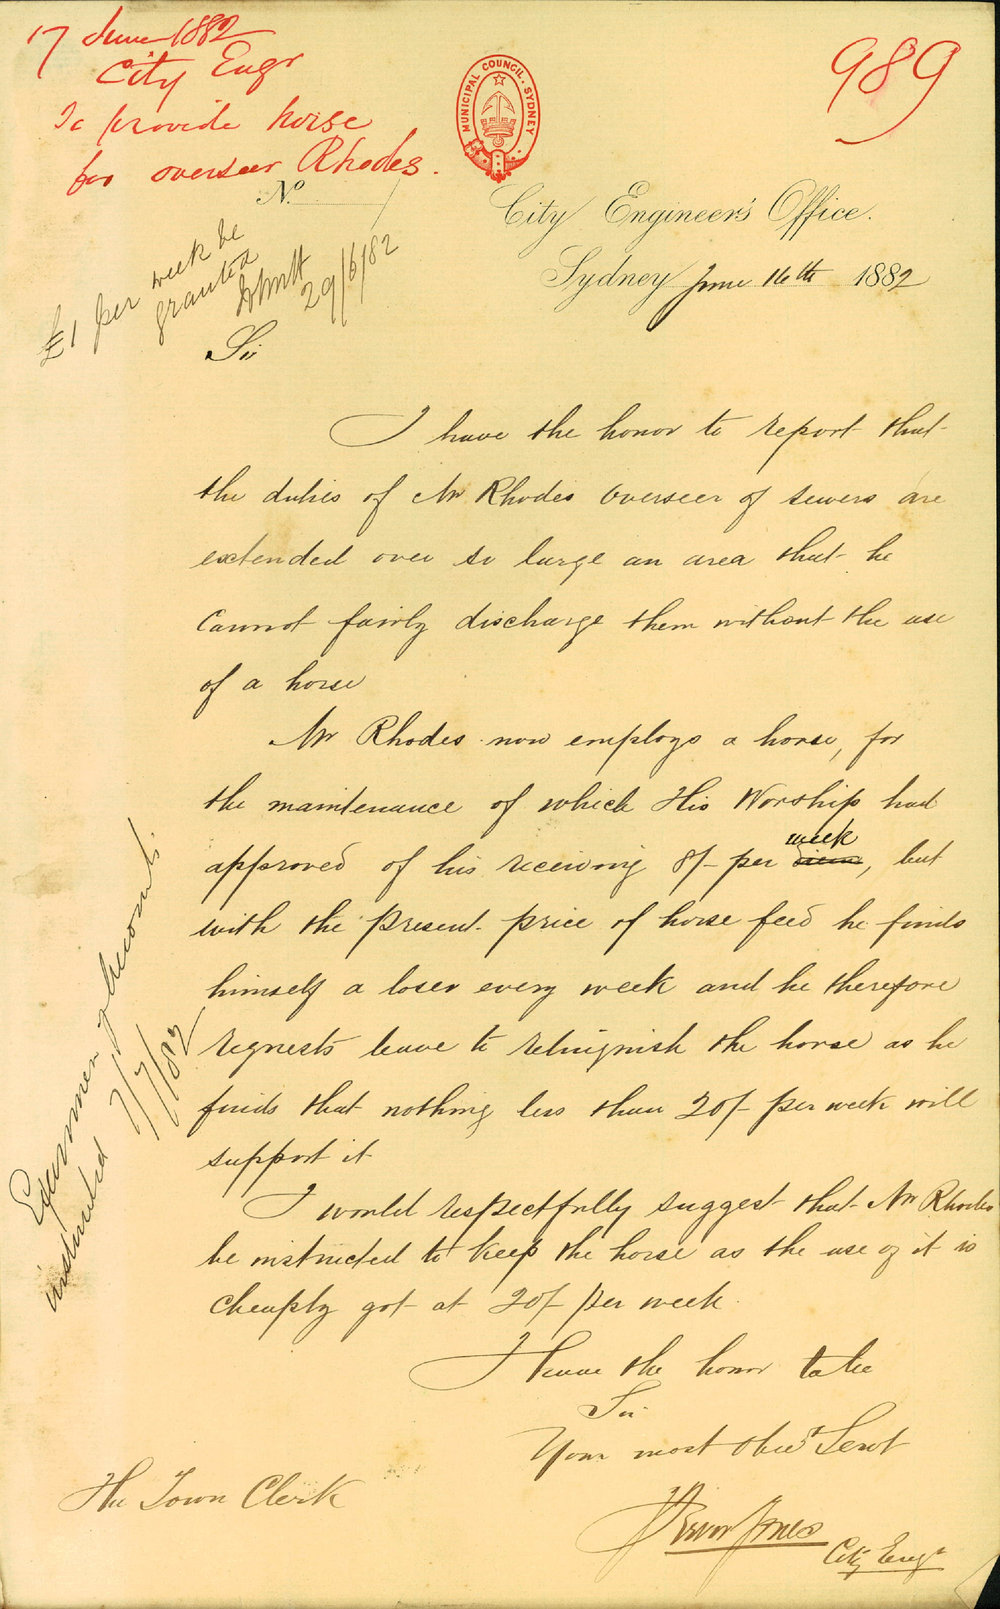 17 June 1882
City Engr
To provide horse
for overseer Rhodes.
989
MUNICIPAL COUNCIL. SYDNEY
No
City Engineer's Office.
Sydney June 16th 1882
£1 per week be
granted
29/6/82
Sir
I have the honor to report that
the duties of Mr Rhodes Overseer of sewers are
extended over so large an area that he
cannot fairly discharge them without the use
of a horse
Mr Rhodes now employs a horse, for
the maintenance of which His Worship had
approved of his receiving 8/- per week, but
with the present price of horse feed he finds
himself a loser every week and he therefore
requests leave to relinquish the horse as he
finds that nothing less than 20/- per week will
support it
I would respectfully suggest that Mr Rhodes
be instructed to keep the horse as the use of it is
cheaply got at 20/- per week.
I have the honor to be
Sir
Your most obedt Servt
Trevor Jones
City Engr
The Town Clerk
Examiner of Accounts
instructed 7/7/82